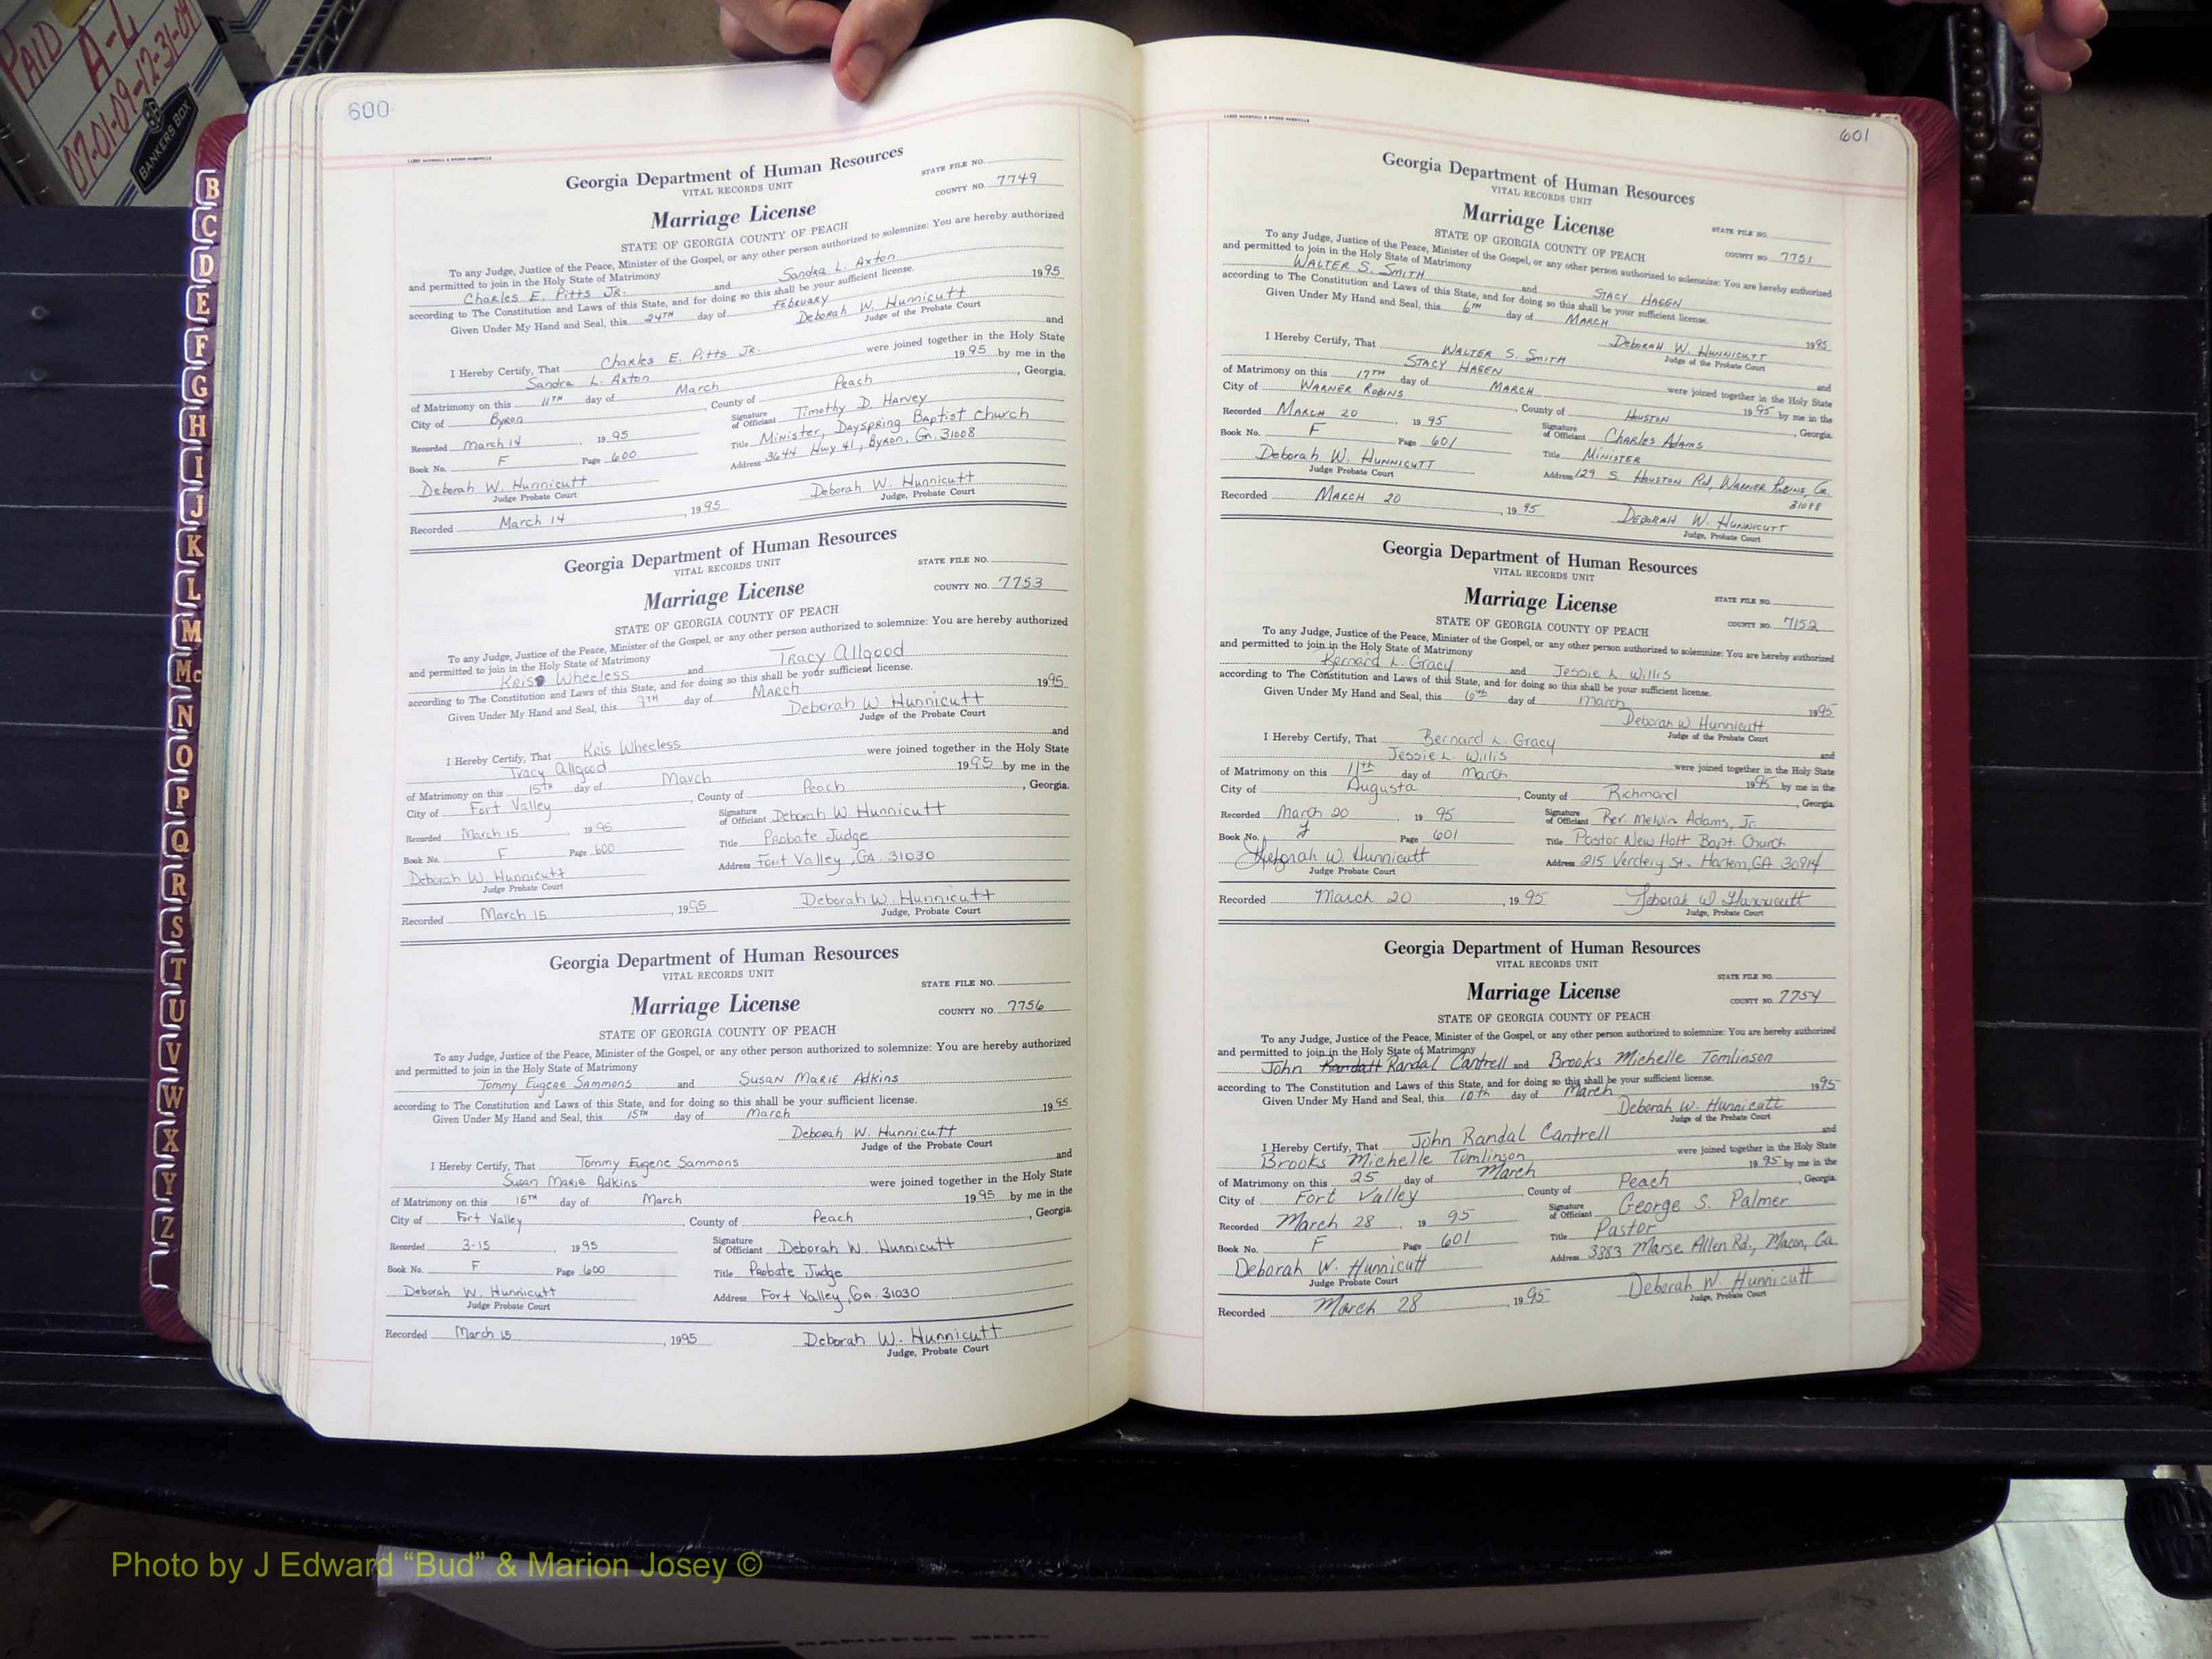 PAID
A-L
07-01-09-12-31-09
BANKERS BOX
B
C
D
E
F
G
H
I
J
K
L
M
Mc
N
O
P
Q
R
S
T
U
V
W
X
Y
Z
600
Georgia Department of Human Resources
VITAL RECORDS UNIT
STATE FILE NO.
COUNTY NO. 7749
Marriage License
STATE OF GEORGIA COUNTY OF PEACH
To any Judge, Justice of the Peace, Minister of the Gospel, or any other person authorized to solemnize: You are hereby authorized
and permitted to join in the Holy State of Matrimony
Charles E. Pitts JR. and Sandra L. Axton
according to The Constitution and Laws of this State, and for doing so this shall be your sufficient license.
Given Under My Hand and Seal, this 24TH day of February 1995
Deborah W. Hunnicutt
Judge of the Probate Court
I Hereby Certify, That Charles E. Pitts JR. and
Sandra L. Axton were joined together in the Holy State
of Matrimony on this 11TH day of March 1995 by me in the
City of Byron, County of Peach, Georgia.
Recorded March 14, 1995 Signature of Officiant Timothy D. Harvey
Book No. F Page 600 Title Minister, Dayspring Baptist Church
Address 3644 Hwy 41, Byron, Ga. 31008
Deborah W. Hunnicutt
Judge Probate Court
Recorded March 14, 1995 Deborah W. Hunnicutt
Judge, Probate Court
Georgia Department of Human Resources
VITAL RECORDS UNIT
STATE FILE NO.
COUNTY NO. 7753
Marriage License
STATE OF GEORGIA COUNTY OF PEACH
To any Judge, Justice of the Peace, Minister of the Gospel, or any other person authorized to solemnize: You are hereby authorized
and permitted to join in the Holy State of Matrimony
Kris Wheeless and Tracy Allgood
according to The Constitution and Laws of this State, and for doing so this shall be your sufficient license.
Given Under My Hand and Seal, this 9TH day of March 1995
Deborah W. Hunnicutt
Judge of the Probate Court
I Hereby Certify, That Kris Wheeless and
Tracy Allgood were joined together in the Holy State
of Matrimony on this 15TH day of March 1995 by me in the
City of Fort Valley, County of Peach, Georgia.
Recorded March 15, 1995 Signature of Officiant Deborah W. Hunnicutt
Book No. F Page 600 Title Probate Judge
Address Fort Valley, GA. 31030
Deborah W. Hunnicutt
Judge Probate Court
Recorded March 15, 1995 Deborah W. Hunnicutt
Judge, Probate Court
Georgia Department of Human Resources
VITAL RECORDS UNIT
STATE FILE NO.
COUNTY NO. 7756
Marriage License
STATE OF GEORGIA COUNTY OF PEACH
To any Judge, Justice of the Peace, Minister of the Gospel, or any other person authorized to solemnize: You are hereby authorized
and permitted to join in the Holy State of Matrimony
Tommy Eugene Sammons and Susan Marie Adkins
according to The Constitution and Laws of this State, and for doing so this shall be your sufficient license.
Given Under My Hand and Seal, this 15TH day of March 1995
Deborah W. Hunnicutt
Judge of the Probate Court
I Hereby Certify, That Tommy Eugene Sammons and
Susan Marie Adkins were joined together in the Holy State
of Matrimony on this 15TH day of March 1995 by me in the
City of Fort Valley, County of Peach, Georgia.
Recorded 3-15, 1995 Signature of Officiant Deborah W. Hunnicutt
Book No. F Page 600 Title Probate Judge
Address Fort Valley, GA. 31030
Deborah W. Hunnicutt
Judge Probate Court
Recorded March 15, 1995 Deborah W. Hunnicutt
Judge, Probate Court
601
Georgia Department of Human Resources
VITAL RECORDS UNIT
Marriage License
STATE FILE NO.
STATE OF GEORGIA COUNTY OF PEACH
COUNTY NO. 7751
To any Judge, Justice of the Peace, Minister of the Gospel, or any other person authorized to solemnize: You are hereby authorized
and permitted to join in the Holy State of Matrimony
WALTER S. SMITH and STACY HAGEN
according to The Constitution and Laws of this State, and for doing so this shall be your sufficient license.
Given Under My Hand and Seal, this 6TH day of MARCH 1995
DEBORAH W. HUNNICUTT
Judge of the Probate Court
I Hereby Certify, That WALTER S. SMITH and
STACY HAGEN were joined together in the Holy State
of Matrimony on this 17TH day of MARCH 1995 by me in the
City of WARNER ROBINS, County of HOUSTON, Georgia.
Recorded MARCH 20, 1995 Signature of Officiant CHARLES ADAMS
Book No. F Page 601 Title MINISTER
Address 129 S. HOUSTON Rd, WARNER ROBINS, Ga. 31088
DEBORAH W. HUNNICUTT
Judge Probate Court
Recorded MARCH 20, 1995 DEBORAH W. HUNNICUTT
Judge, Probate Court
Georgia Department of Human Resources
VITAL RECORDS UNIT
Marriage License
STATE FILE NO.
STATE OF GEORGIA COUNTY OF PEACH
COUNTY NO. 7152
To any Judge, Justice of the Peace, Minister of the Gospel, or any other person authorized to solemnize: You are hereby authorized
and permitted to join in the Holy State of Matrimony
Bernard L. Gracy and Jessie L Willis
according to The Constitution and Laws of this State, and for doing so this shall be your sufficient license.
Given Under My Hand and Seal, this 6th day of March 1995
Deborah W Hunnicutt
Judge of the Probate Court
I Hereby Certify, That Bernard L. Gracy and
Jessie L. Willis were joined together in the Holy State
of Matrimony on this 11th day of March 1995 by me in the
City of Augusta, County of Richmond, Georgia
Recorded March 20, 1995 Signature of Officiant Rev. Melvin Adams, Jr.
Book No. F Page 601 Title Pastor New Holt Bapt. Church
Address 215 Verdery St. Harlem, GA 30814
Deborah W Hunnicutt
Judge Probate Court
Recorded March 20, 1995 Deborah W Hunnicutt
Judge, Probate Court
Georgia Department of Human Resources
VITAL RECORDS UNIT
STATE FILE NO.
Marriage License
COUNTY NO. 7754
STATE OF GEORGIA COUNTY OF PEACH
To any Judge, Justice of the Peace, Minister of the Gospel, or any other person authorized to solemnize: You are hereby authorized
and permitted to join in the Holy State of Matrimony
John Randall Randal Cantrell and Brooks Michelle Tomlinson
according to The Constitution and Laws of this State, and for doing so this shall be your sufficient license.
Given Under My Hand and Seal, this 10th day of March 1995
Deborah W. Hunnicutt
Judge of the Probate Court
I Hereby Certify, That John Randal Cantrell and
Brooks Michelle Tomlinson were joined together in the Holy State
of Matrimony on this 25 day of March 1995 by me in the
City of Fort Valley, County of Peach, Georgia
Recorded March 28, 1995 Signature of Officiant George S. Palmer
Book No. F Page 601 Title Pastor
Address 3383 Marse Allen Rd., Macon, Ga.
Deborah W. Hunnicutt
Judge Probate Court
Recorded March 28, 1995 Deborah W. Hunnicutt
Judge, Probate Court
Photo by J Edward “Bud” & Marion Josey ©